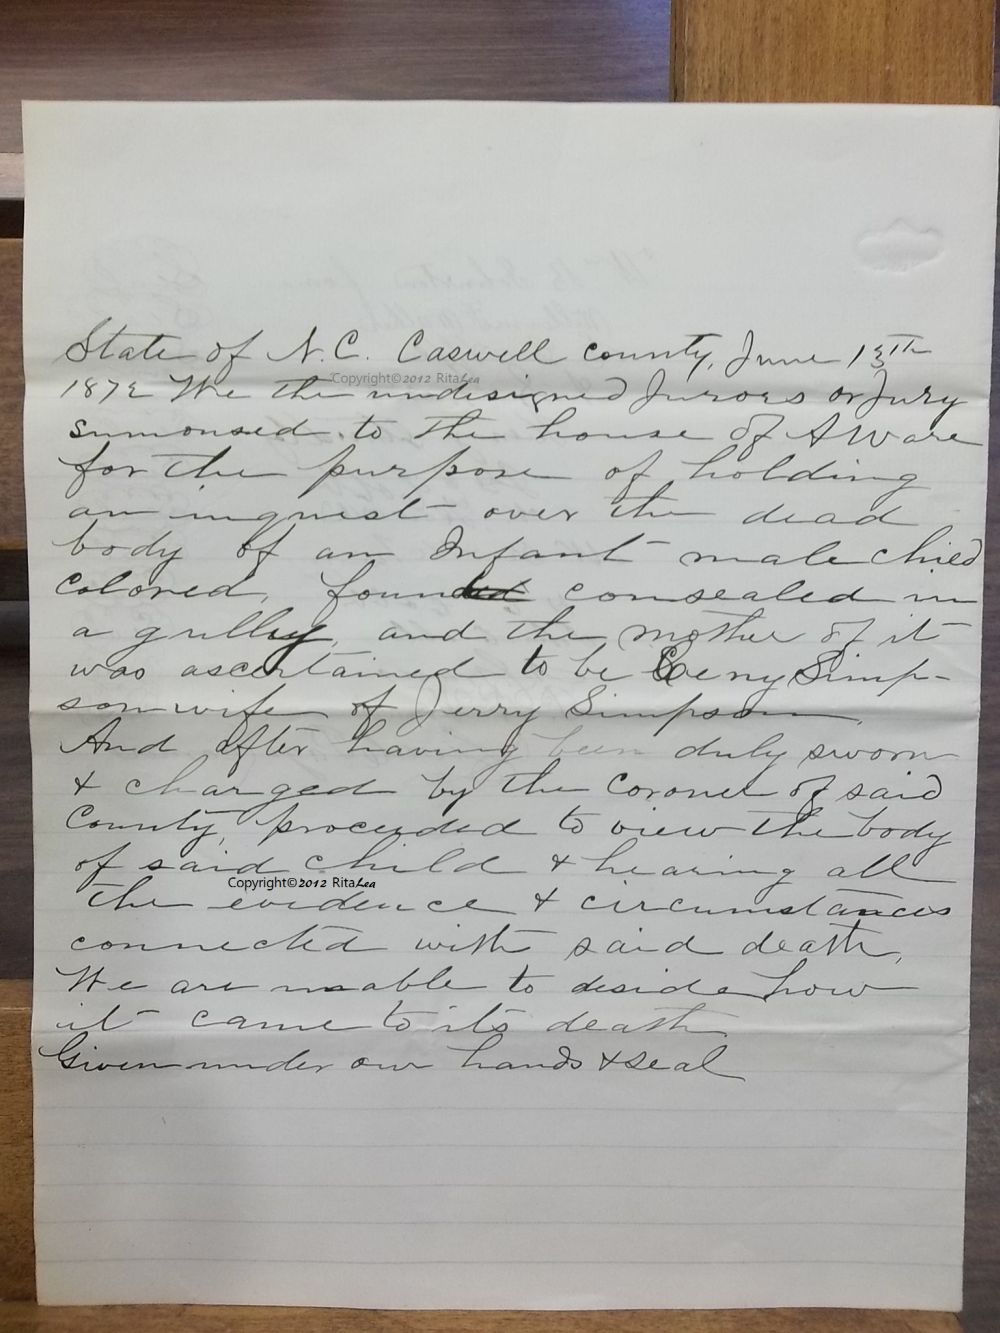 State of N.C. Caswell county, June 13th
1872 We the undesigned Jurors or Jury
Copyright©2012 RitaLea
sumonsed to the house of A Ware
for the purpose of holding
an inquest over the dead
body of an Infant male chied
colored, found consealed in
a gulley, and the mother of it
was ascertained to be Simp-
son wife of Jerry Simpson,
And after having been duly sworn
& charged by the Coroner of said
County, proceeded to view the body
of said child & hearing all
Copyright©2012 RitaLea
the evidence & circumstances
connected with said death,
We are unable to deside how
it came to its death
Given under our hands & seal